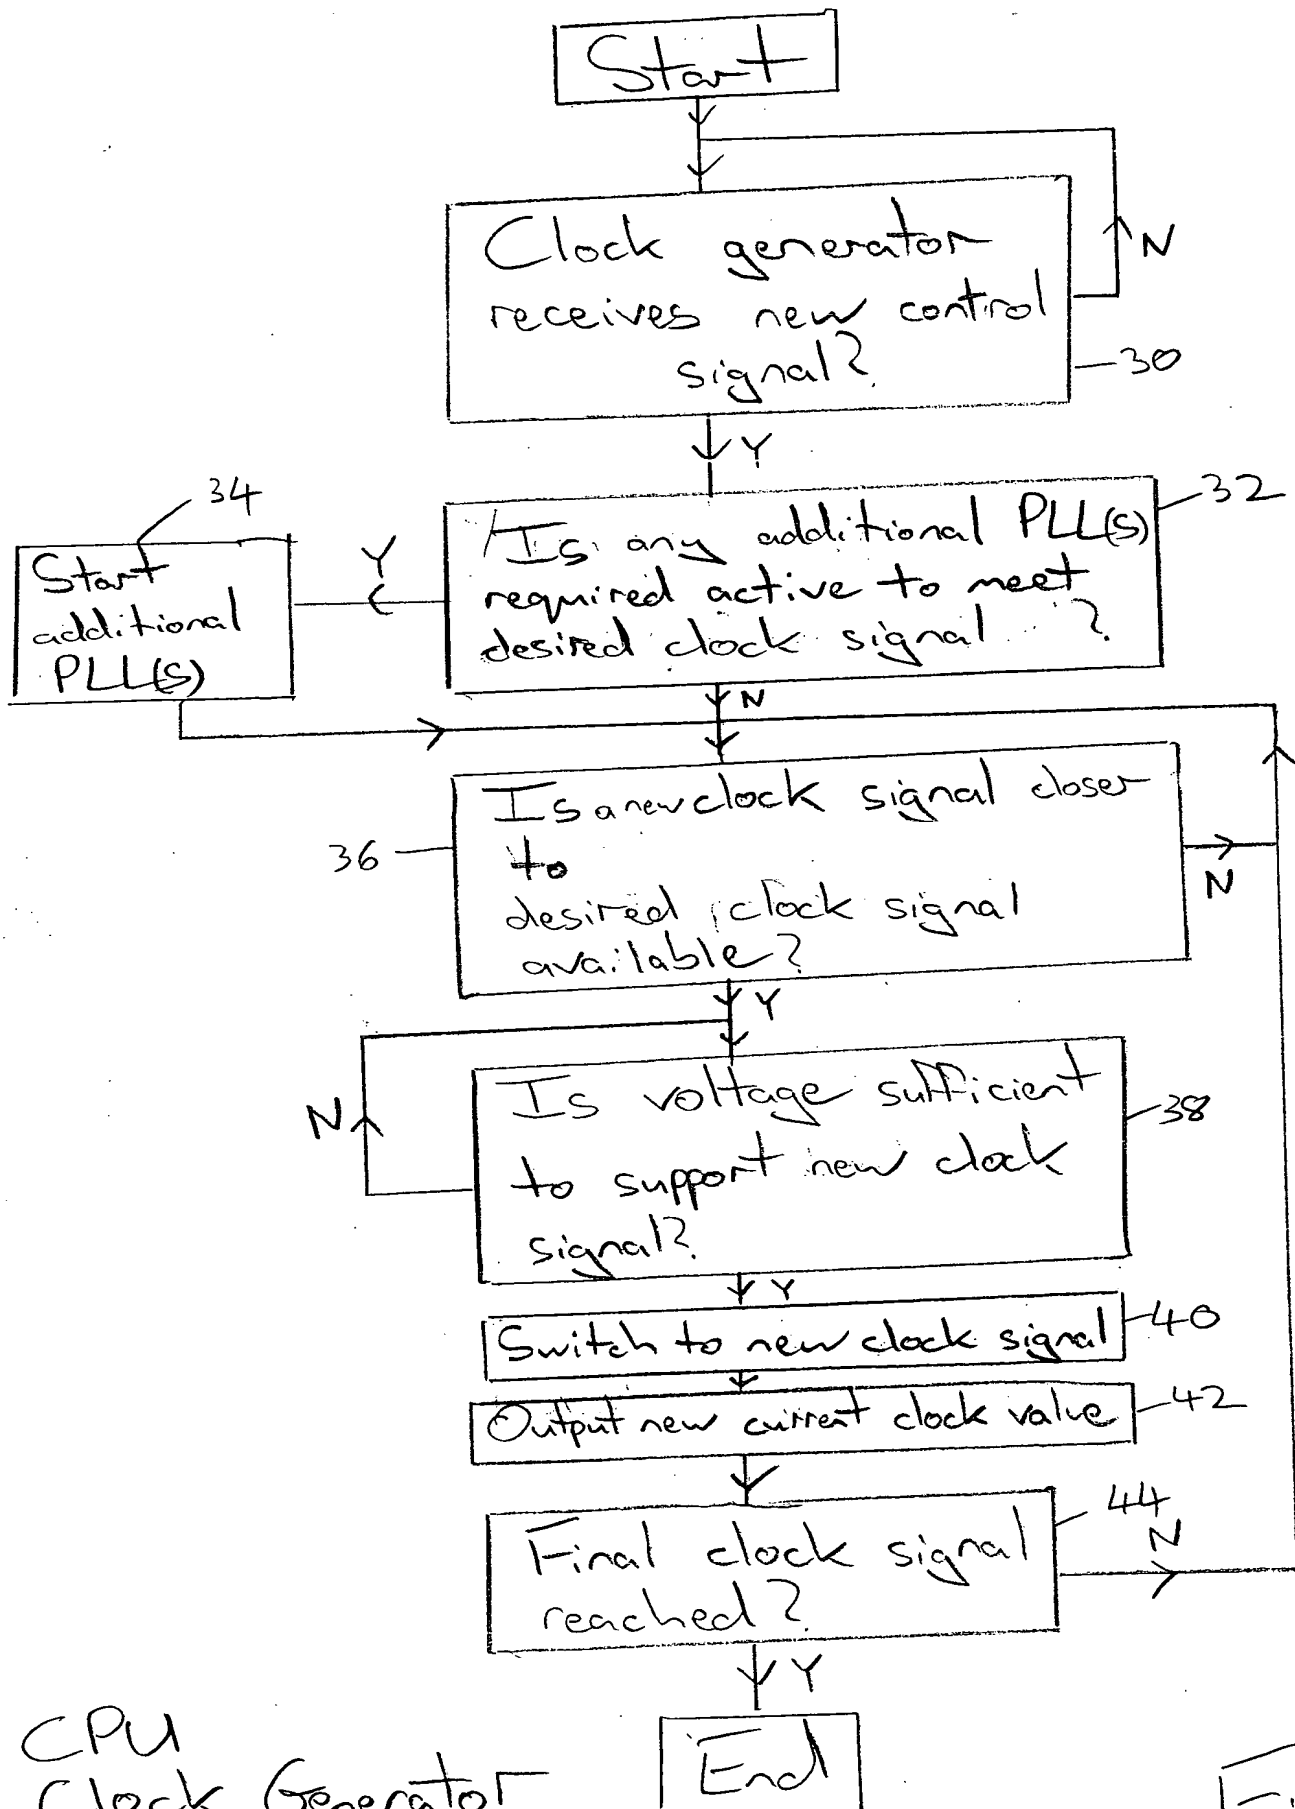 Start
Clock generator
receives new control
signal?
N
30
Y
34
32
Start
additional
PLL(s)
Y
Is any additional PLL(s)
required active to meet
desired clock signal ?
N
Is a new clock signal closer
to
desired clock signal
available?
36
N
Y
Is voltage sufficient
to support new clock
signal?
N
38
Y
Switch to new clock signal
40
Output new current clock value
42
Final clock signal
reached?
44
N
Y
CPU
Clock Generator
End